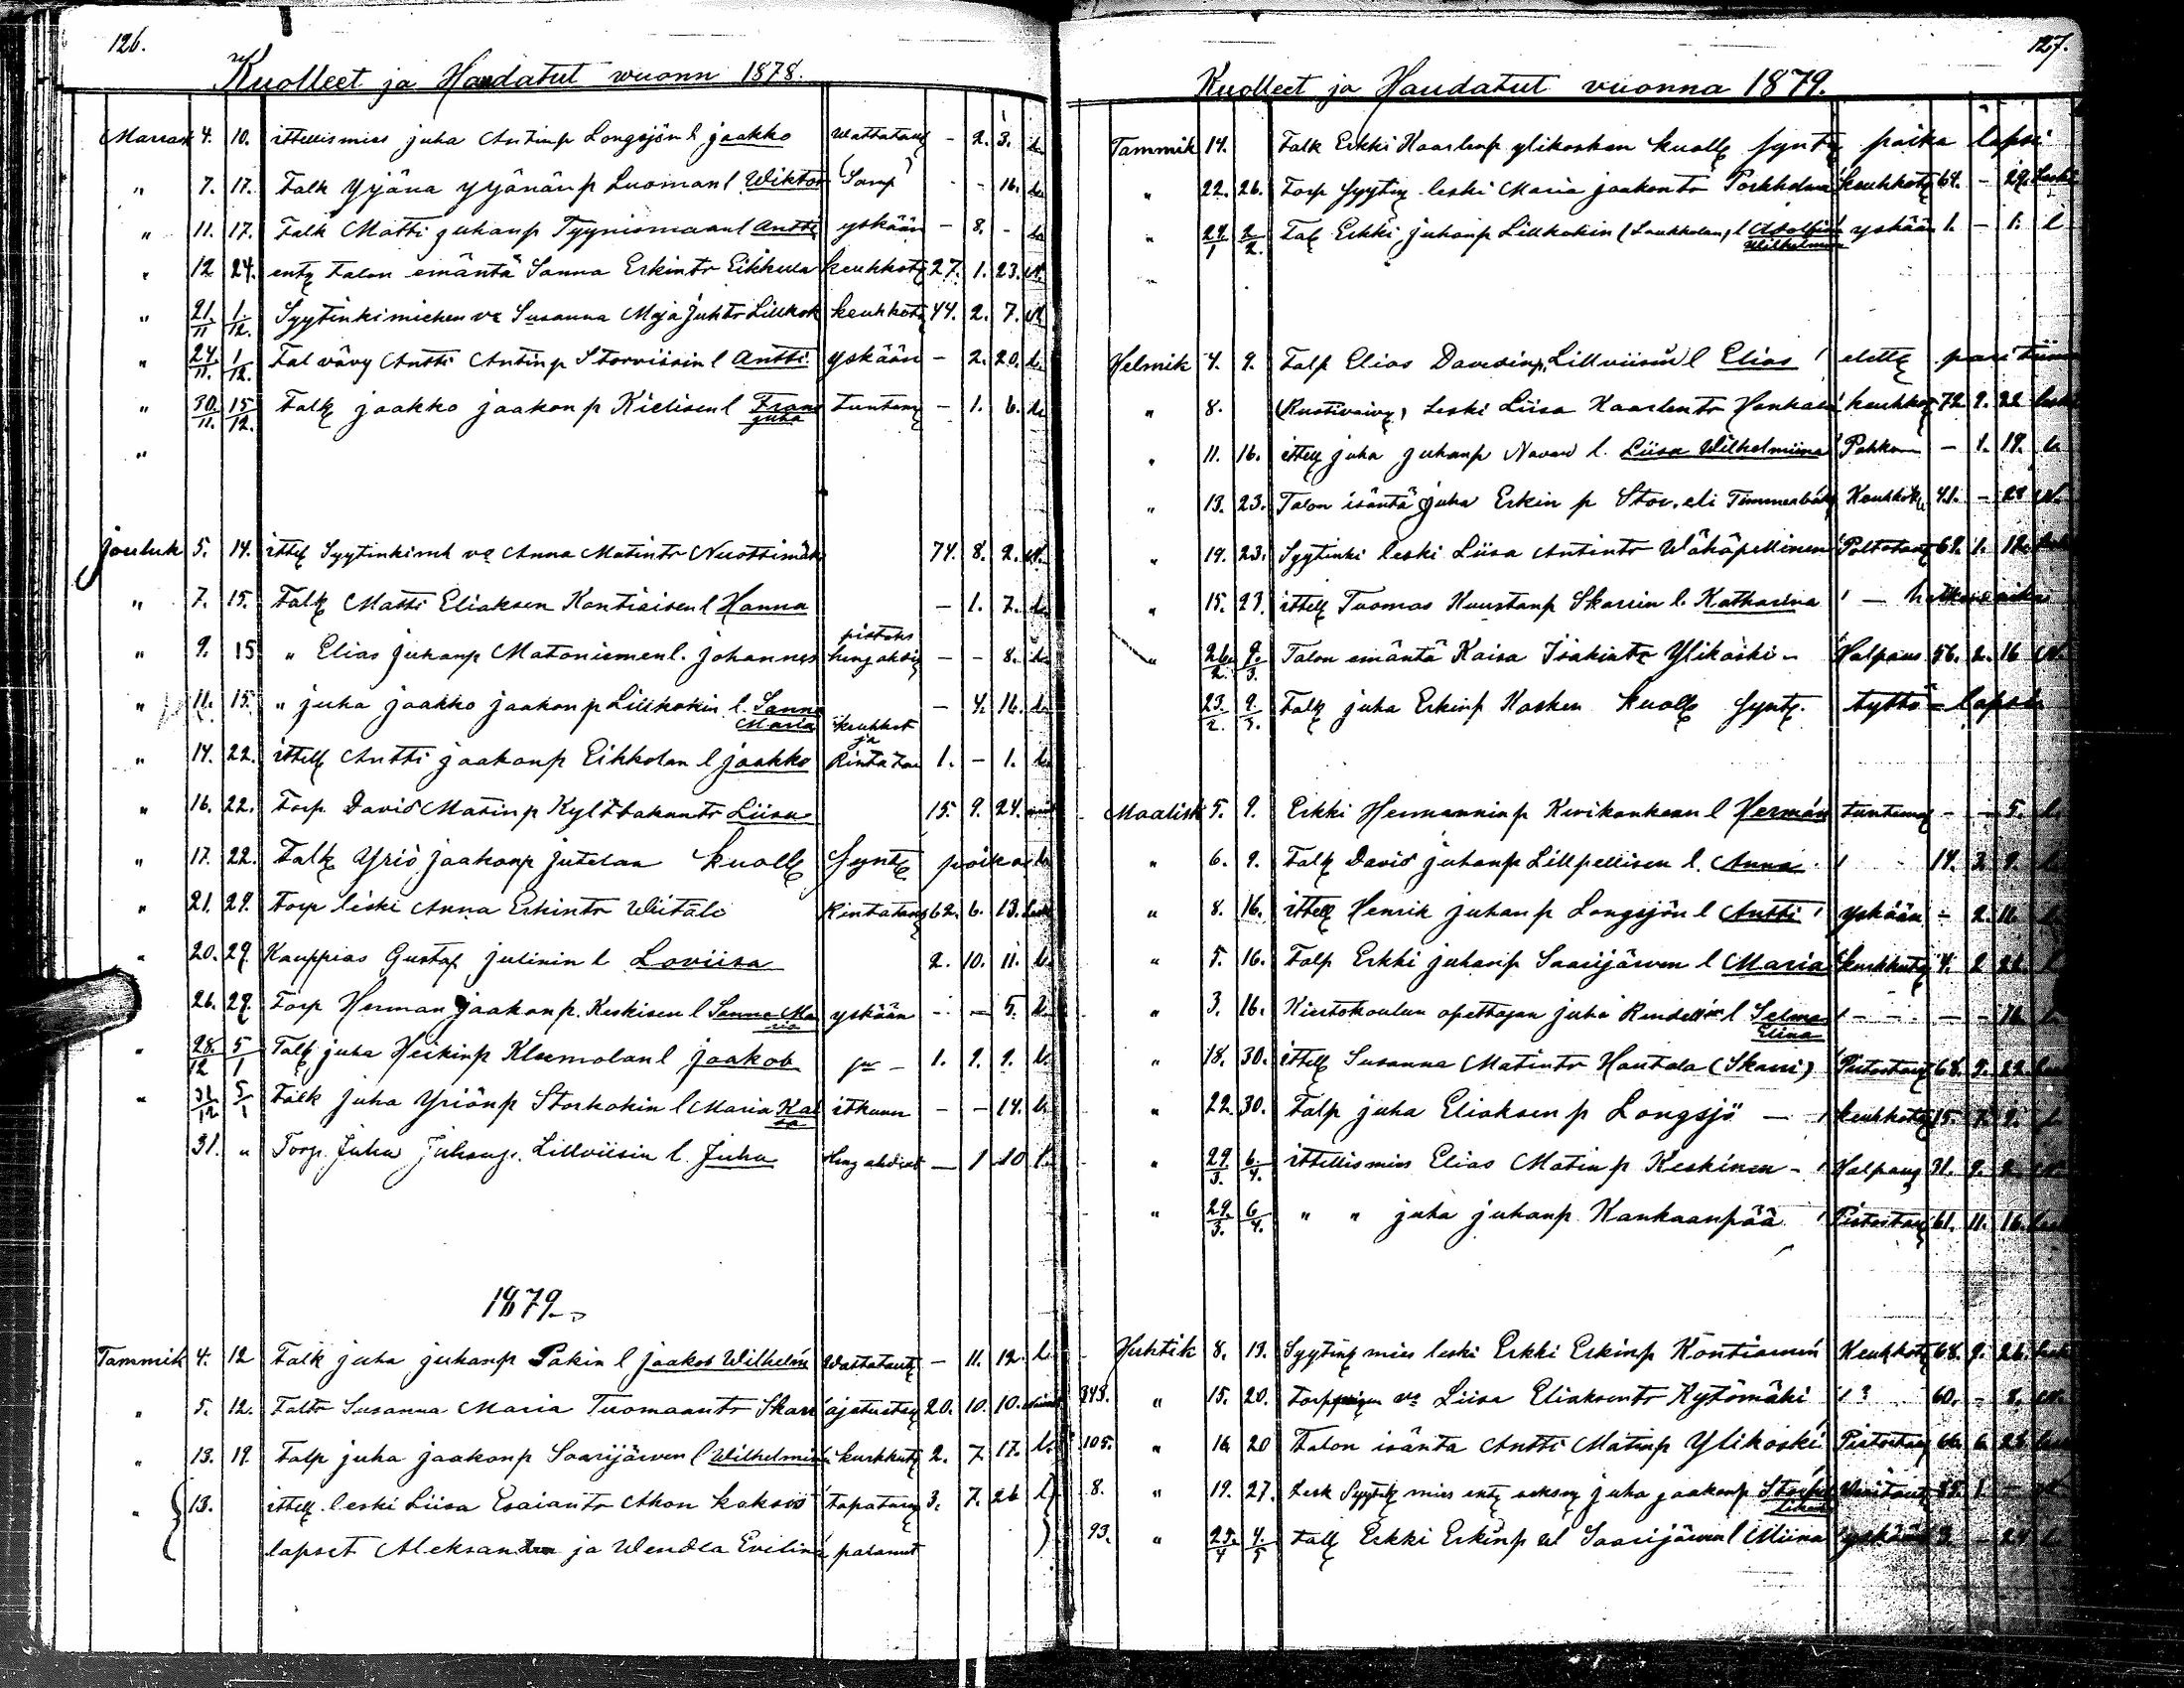 126.
Kuolleet ja Haudatut wuonn 1878.
Marrask 4. 10. ittellismies juha Antinp Longsjön l jaakko Wattataut - 2. 3.
" 7. 17. Talk Yrjäna yrjänänp Luoman l Wiktor Samp - - 16.
" 11. 17. Talk Matti juhanp Tyynismaan l Antti yskään - 8. -
" 12 24. ent talon emäntä Sanna Erkintr Eikkula keuhkot 27. 1. 23.
" 21/11 1/12. Syytinkimiehen va Susanna Maja Juhtr Lillkok keuhkot 44. 2. 7.
" 24/11. 1/12. Tal vävy Antti Antinp Storviisin l Antti yskään - 2. 20.
" 30/11. 15/12. Talk jaakko jaakonp Kielisen l Frans juha tuntem - 1. 6.
"
jouluk 5. 14. ittell Syytinkimh va Anna Matintr Nuottimäk 74. 8. 2.
" 7. 15. Talk Matti Eliaksen Kontiaisen l Hanna - 1. 7.
" 9. 15 " Elias juhanp Mataniemen l. johannes pistoks heng ahdis - - 8.
" 11. 15. " juha jaakko jaakonp Lillkokin l. Sanna Maria - 4. 16.
" 14. 22. ittell Antti jaakonp Eikkolan l jaakko keuhkot ja Rintatau 1. - 1.
" 16. 22. Torp. David Matinp Kyltbakantr Liisa 15. 9. 24.
" 17. 22. Talk Yriö jaakonp jutelan kuoll Synt poika
" 21. 29. Torp leski Anna Erkintr Wiitala Rintataut 62. 6. 13. Leski
" 20. 29. Kauppias Gustaf julinin l Loviisa 2. 10. 11.
26. 29. Torp Herman jaakonp. Keskisen l Sanna Maria yskään - - 5.
" 28./12 5/1 Talk juha Heikinp Kleemolan l jaakob 1. 9. 9.
" 31/12 5/1 Talk juha Yriönp Storkokin l Maria Kaisa itkuun - - 14.
31. " Torp. Juha Juhanp. Lillviisin l. Juha Heng ahdist - 1 10 l.
1879.
Tammik 4. 12 Talk juha juhanp Pakin l jaakob Wilhelm Wattataut - 11. 12. l.
" 5. 12. Taltr Susanna Maria Tuomaantr Skari ajatustau 20. 10. 10.
" 13. 19. Talp juha jaakonp Saarijärwen l Wilhelmina kurkkut 2. 7 17. l.
" 13. ittell. leski Liisa Esaiantr Ahon kaksos tapatur 3. 7. 26 l
lapset Aleksandra ja Wendla Evelina palanut
127.
Kuolleet ja Haudatut vuonna 1879.
Tammik 14. Talk Erkki Kaarlenp ylikosken kuoll synt poika lapsi
" 22. 26. Torp Syytin leski Maria jaakontr Porkholma keuhkot 64. - 29. Leski
" 29/1 2/2. Tal Erkki juhanp Lillkokin (Laukkolan) l Adolfina Wilhelmina yskään 1. - 1. l
Helmik 4. 9. Talp Elias Davidinp. Lillviisin l Elias elett pari tiim
" 8. (Ruotivaiv) Leski Liisa Kaarlentr Honkala keuhkot 72 9. 22 Leski
" 11. 16. ittell juha juhanp Navar l. Liisa Wilhelmiina - 1. 19. l.
" 13. 23. Talon isäntä Juha Erkin p Stor. eli Timmerbäk Keuhkot 41. - 29
" 14. 23. Syytinki leski Liisa Antintr Wähäpellinen Polttotaut 69. 1. 12.
" 15. 23. ittell Tuomas Kuustanp Skarin l. Katharina -
" 26./2. 9./3. Talon emäntä Kaisa Isakintr Ylikoski - Halpaus 56. 2. 16
23./2. 9/3. Talk juha Erkinp Kosken kuoll synt. tyttö - lapsi
Maalisk 5. 9. Erkki Hermanninp Kivikankaan l Herman tuntema - - 5. l.
" 6. 9. Talk David juhanp Lillpellisen l. Anna 14. 3 9.
" 8. 16. ittell Henrik juhanp Longsjön l Antti yskään - 2. 11.
" 5. 16. Talp Erkki juhanp Saarijärven l Maria kurkkut 4. 2 22.
" 3. 16. Kiertokoulun opettajan juha Rindellin l Selma Elina - - - - 16
" 18. 30. ittell Susanna Matintr Hautala (Skarri) Pistostaut 68. 9. 22
" 22. 30. Talp juha Eliaksen p Longsjö - keuhkot 15. 7. 9. l.
" 29/3. 6./4. ittellismies Elias Matinp Keskinen - Halpaus 31. 9. 2.
" 29./3. 6/4. " " juha juhanp. Kankaanpää Pistostaut 61. 11. 16.
Huhtik 8. 13. Syyting mies leski Erkki Erkinp Kontiainen Keuhkot 68. 9. 26. Leski
343. " 15. 20. torpparin va Liisa Eliaksentr Kytömäki ? 60. - 8.
105. " 16. 20 Talon isäntä Antti Matinp Ylikoski Pistostaut 66. 6. 28
8. " 19. 27. Lesk Syytink mies ent juha jaakonp 85. 1. -
93. " 25./4 4/5 Talk Erkki Erkinp Saarijärven l Miina yskään 3. - 24 l.